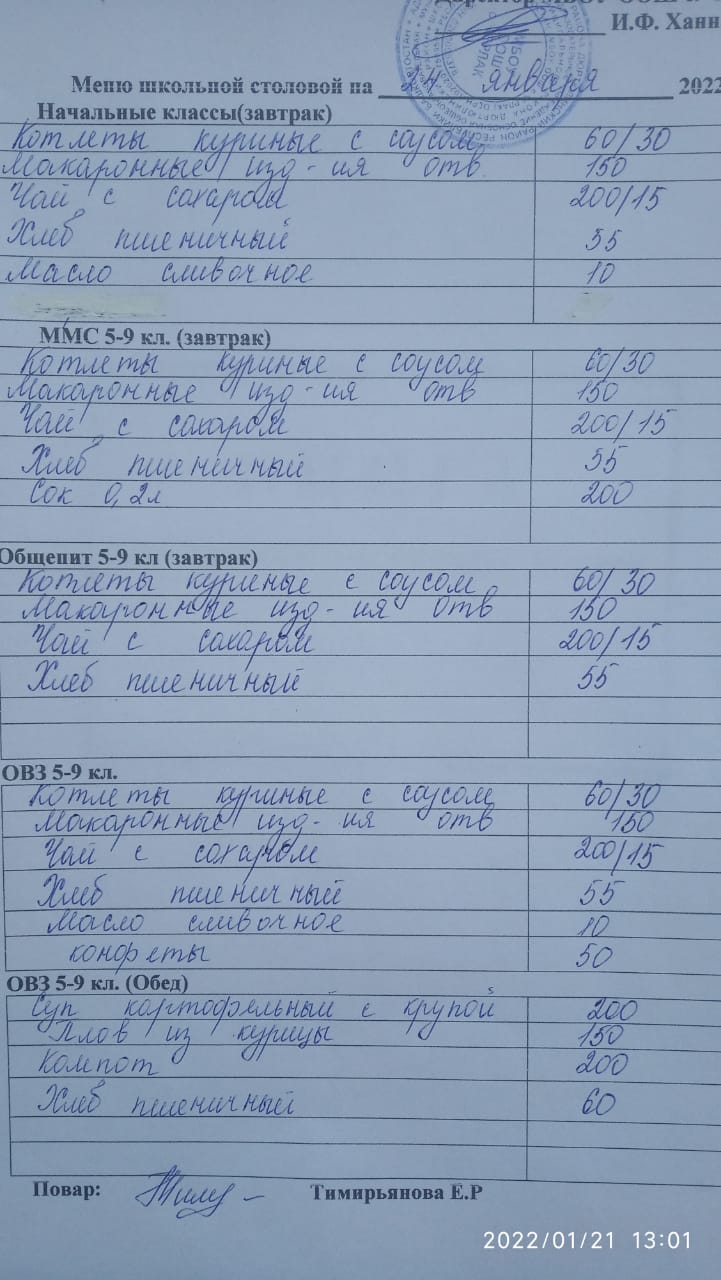 Директор МБОУ ООШ
И.Ф. Ханн
Меню школьной столовой на 24 января 2022
Начальные классы(завтрак)
Котлеты куриные с соусом 60/30
Макаронные изд-ия отв 150
Чай с сахаром 200/15
Хлеб пшеничный 55
Масло сливочное 10
ММС 5-9 кл. (завтрак)
Котлеты куриные с соусом 60/30
Макаронные изд-ия отв 150
Чай с сахаром 200/15
Хлеб пшеничный 55
Сок 0,2л 200
Общепит 5-9 кл (завтрак)
Котлеты куриные с соусом 60/30
Макаронные изд-ия отв 150
Чай с сахаром 200/15
Хлеб пшеничный 55
ОВЗ 5-9 кл.
Котлеты куриные с соусом 60/30
Макаронные изд-ия отв 150
Чай с сахаром 200/15
Хлеб пшеничный 55
Масло сливочное 10
конфеты 50
ОВЗ 5-9 кл. (Обед)
Суп картофельный с крупой 200
Плов из курицы 150
Компот 200
Хлеб пшеничный 60
Повар: Тимирьянова Е.Р
2022/01/21 13:01